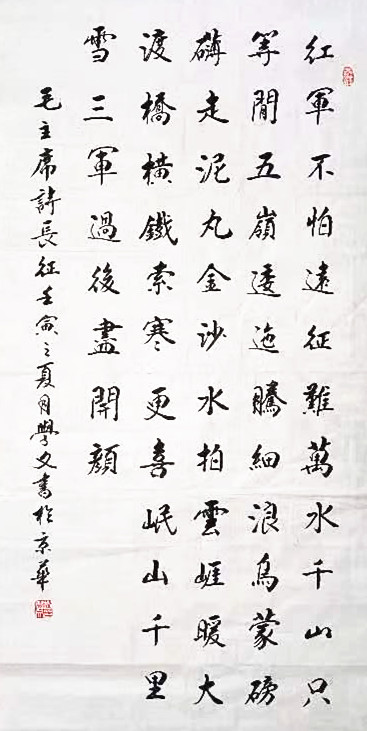 紅軍不怕遠征難萬水千山只
等閒五嶺逶迤騰細浪烏蒙磅
礴走泥丸金沙水拍雲崖暖大
渡橋橫鐵索寒更喜岷山千里
雪三軍過後盡開顏
毛主席詩長征壬寅之夏月學文書於京華